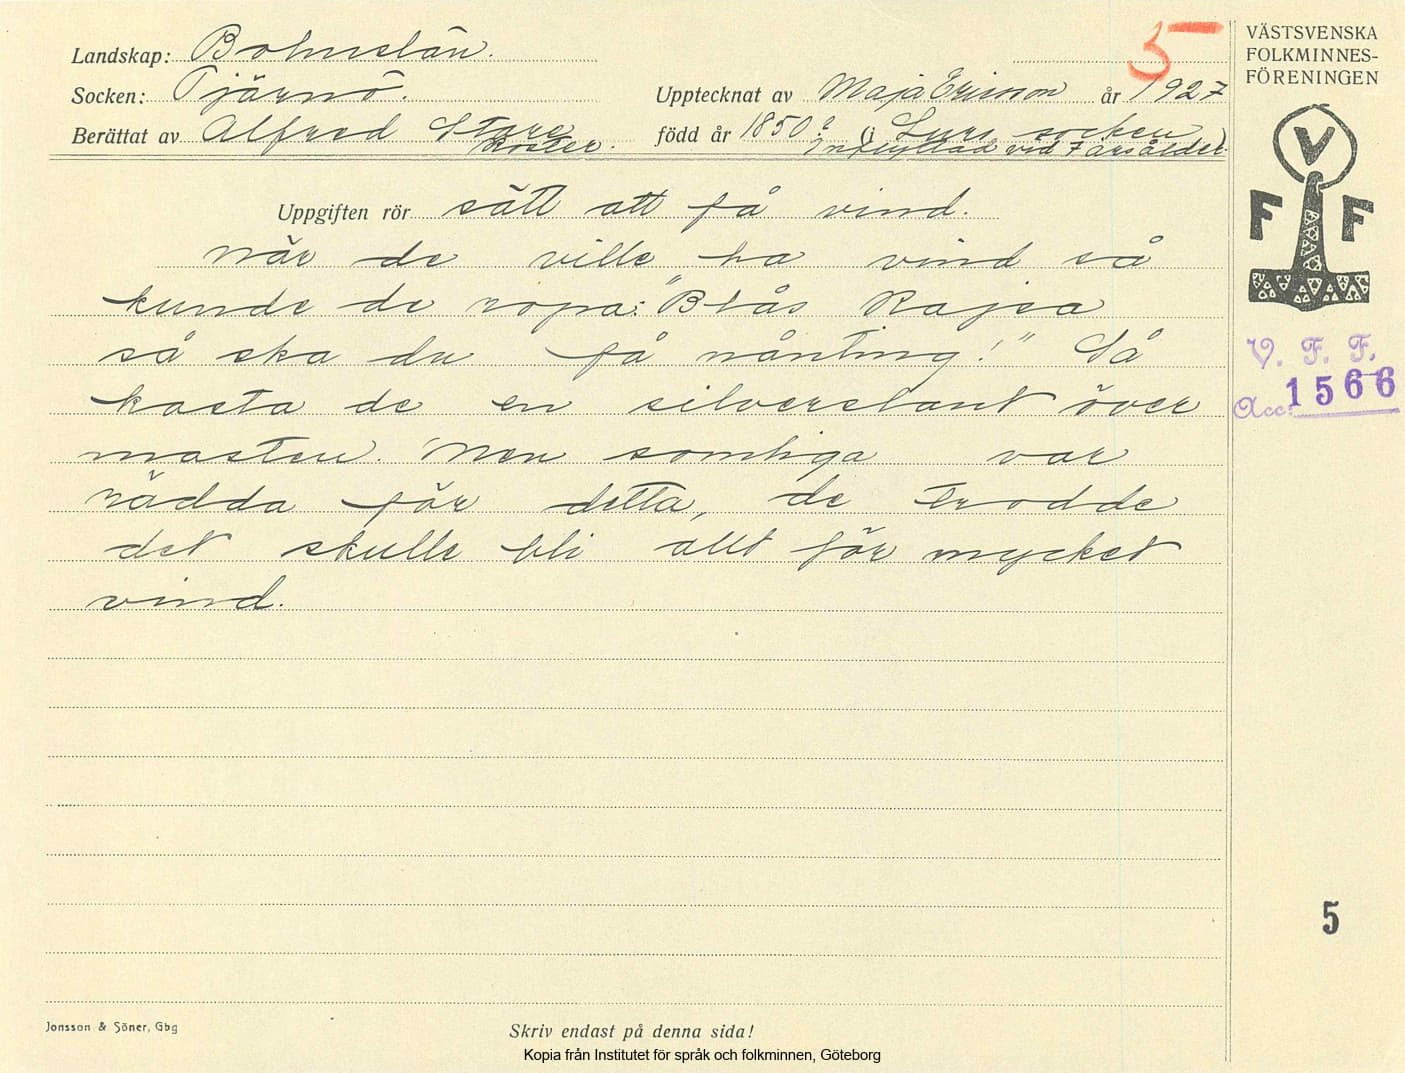 Landskap: Bohuslän.
5
Socken: Tjärnö.
Upptecknat av Maja Ericson år 1927
Berättat av Alfred Stare
Koster.
född år 1850? (i Lurs socken)
Inflyttad vid 7 årsålder
Uppgiften rör sätt att få vind.
När de ville ha vind så
kunde de ropa: "Blås Kajsa
så ska du få nånting!" Så
kasta de en silverslant över
masten. Men somliga var
rädda för detta, de trodde
det skulle bli allt för mycket
vind.
VÄSTSVENSKA
FOLKMINNES-
FÖRENINGEN
V
F F
V. F. F.
Acc: 1566
5
Jonsson & Söner, Gbg
Skriv endast på denna sida!
Kopia från Institutet för språk och folkminnen, Göteborg